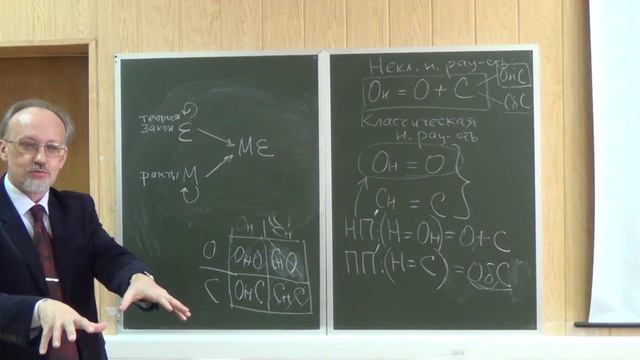 теория
закон ε
Mε
факты M
О ОнО СнО
С ОнС СнС
Некл. н. рац-сть
Он = О + С ОнС
СбС
Классическая
н. рац-сть
Он = О
Сн = С
НП: (Н = Он) = О + С
ПП: (Н = С) = ОбС